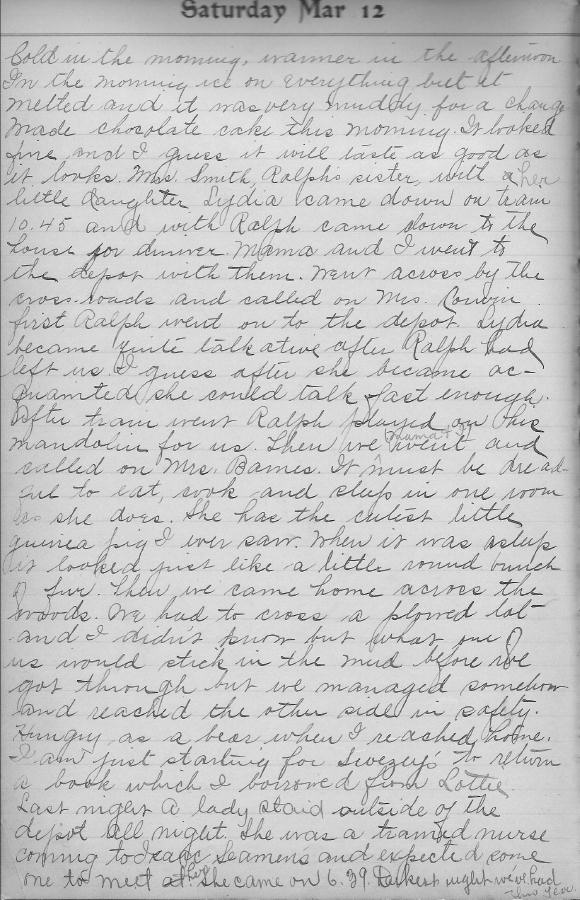 Saturday Mar 12
Cold in the morning, warmer in the afternoon
In the morning ice on everything but it
melted and it was very muddy for a change
Made chocolate cake this morning. It looked
fine and I guess it will taste as good as
it looks. Mrs. Smith, Ralph's sister, with her
little daughter Lydia came down on train
10.45 and with Ralph came down to the
house for dinner. Mama and I went to
the depot with them. Went across by the
cross-roads and called on Mrs.
first Ralph went on to the depot. Lydia
became quite talkative after Ralph had
left us. I guess after she became ac-
quainted she could talk fast enough.
After train went Ralph played on his
mandolin for us. Then we mama & I went and
called on Mrs. Barnes. It must be dread-
ful to eat, cook and sleep in one room
as she does. She has the cutest little
guinea pig I ever saw. When it was asleep
it looked just like a little round bunch
of fur. Then we came home across the
woods. We had to cross a plowed lot
and I didn't know but what one of
us would stick in the mud before we
got through but we managed somehow
and reached the other side in safety.
Hungry as a bear when I reached home.
I am just starting for Swezey's to return
a book which I borrowed from Lottie
Last night a lady staid outside of the
depot all night. She was a trained nurse
coming to Isaac Seamen's and expected some
one to meet her. She came on 6.39. Darkest night we've had
this year.